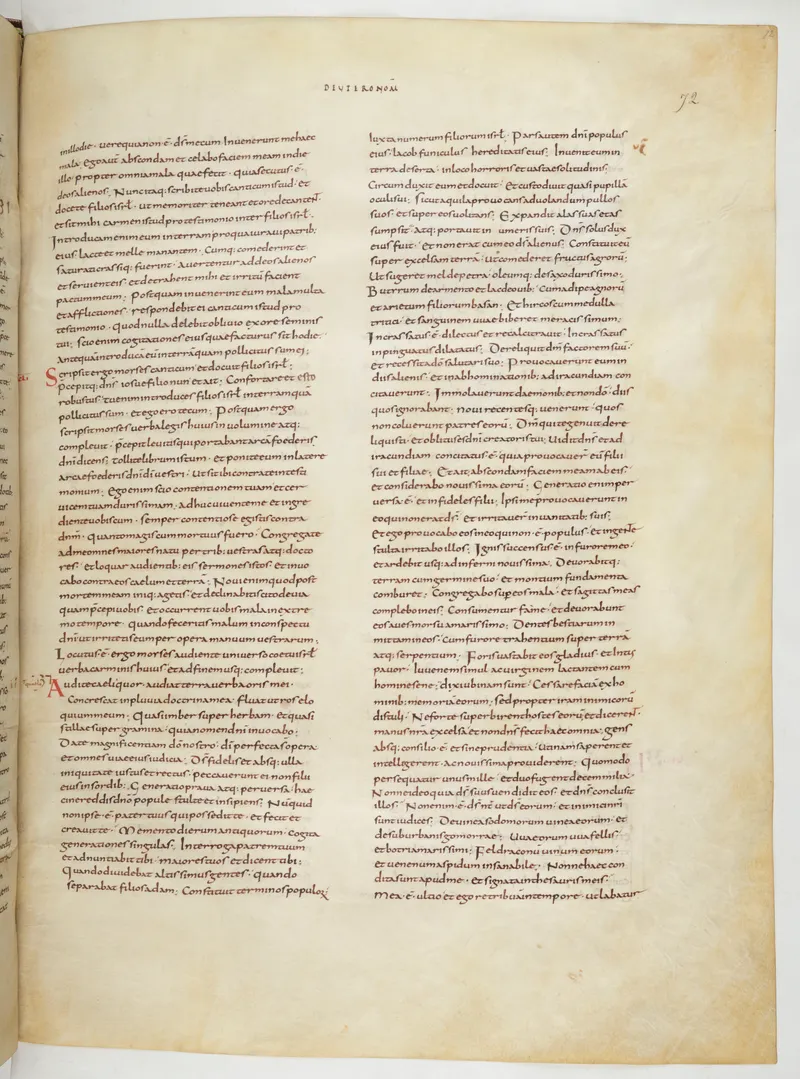 DEUTERONOM̄
72
in illo die · uere quia non ē · d̄s mecum · Inuenerunt me haec
mala · ego aut̄ abscondam et celabo faciem meam in die
illo · propter omnia mala quae fecit · quia secutus ē ·
deos alienos · Nunc itaq; scribite uobis canticum istud · et
docete filios isr̄l · ut memoriter teneant et ore decantent ·
et sit mihi carmen istud pro testimonio inter filios isr̄l ·
Introducam enim eum in terram pro qua iuraui patrib;
eius · lacte et melle manantem · Cumq; comederint et
saturati crassiq; fuerint · auertentur ad deos alienos
et seruient eis · et detrahent mihi et irritū facient
pactum meum · Postquam inuenerint eum mala multa
et afflictiones · respondebit ei canticum istud pro
testimonio · quod nulla delebit obliuio ex ore seminis
tui; scio enim cogitationes eius quae facturus sit hodie ·
Antequam introducā eū in terrā quam pollicitus sum ei;
Scripsit ergo moyses canticum et docuit filios isr̄l;
p̄cepitq; dn̄s iosue filio nun et ait; Confortare et esto
robustus · tu enim introduces filios isr̄l in terram quā
pollicitus sum · et ego ero tecum · Postquam ergo
scripsit moyses uerba legis huius in uolumine atq;
compleuit · p̄cepit leuitis qui portabant arcā foederis
dn̄i dicens; tollite librum istum · et ponite eum in latere
arcae foederis dn̄i d̄i uestri · Ut sit ibi contra te in testi
monium · Ego enim scio contentionem tuam et cer
uicem tuam durissimam · adhuc uiuente me et ingre
diente uobiscum · semper contentiose egistis contra
dn̄m · quanto magis cum mortuus fuero · Congregate
ad me omnes maiores natu per trib; uestras atq; docto
res · et loquar audientib; eis sermones istos · et inuo
cabo contra eos caelum et terrā · Noui enim quod post
mortem meam iniq; agetis · et declinabitis cito de uia
quam p̄cepi uobis · et occurrent uobis mala in extre
mo tempore · quando feceritis malum in conspectu
dn̄i ut irritetis eum per opera manuum uestrarum;
Locutus ē · ergo moyses audiente uniuerso coetu isr̄l
uerba carminis huius et ad finem usq; compleuit;
Audite caeli quae loquor · audiat terra uerba oris mei ·
Concrescat in pluuia doctrina mea · fluat ut ros elo
quium meum · Quasi imber super herbam · et quasi
stillae super gramina · quia nomen dn̄i inuocabo ·
Date magnificentiam dō nostro · dī perfecta s̄ opera
et omnes uiae eius iudicia · Dī fidelis et absq; ulla
iniquitate iustus et rectus · peccauerunt ei non filii
eius in sordib; Generatio praua atq; peruersa · hae
cine reddis dn̄o popule stulte et insipiens; Nūquid
non ipse ē · pater tuus qui possedit te · et fecit et
creauit te · Memento dierum antiquorum · cogita
generationes singulas; Interroga patrem tuum
et adnuntiabit tibi · maiores tuos et dicent tibi;
Quando diuidebat altissimus gentes · quando
separabat filios adam; Constituit terminos populoꝝ
Iuxta numerum filiorum isr̄l · Pars autem dn̄i populus
eius · Iacob funiculus hereditatis eius; Inuenit eum in
terra deserta · in loco horroris et uastae solitudinis ·
Circumduxit eum et docuit · Et custodiuit quasi pupillā
oculi sui; sicut aquila prouocans ad uolandum pullos
suos · et super eos uolitans; Expandit alas suas et as
sumpsit · atq; portauit in umeris suis; Dn̄s solus dux
eius fuit · et non erat cum eo d̄s alienus; Constituit eū
super excelsam terrā · ut comederet fructus agrorū;
Ut sugeret mel de petra · oleumq; de saxo durissimo;
Butyrum de armento et lac de ouib; Cum adipe agnorū
et arietum filiorum basan; Et hircos cum medulla
tritici · et sanguinem uuae biberet meracissimum;
Incrassatus ē · dilectus et recalcitrauit · Incrassatus
inpinguatus dilatatus; Dereliquit dm̄ factorem suū ·
et recessit a dō salutari suo; Prouocauerunt eum in
diis alienis · et in abhominationib; ad iracundiam con
citauerunt; Immolauerunt daemonib; et non dō · diis
quos ignorabant; noui recentesq; uenerunt · quos
non coluerunt patres eorū; Dm̄ qui te genuit dere
liquisti · et oblitus es dn̄i creatoris tui; Uidit dn̄s et ad
iracundiam concitatus ē · quia prouocauer̄ eū filii
sui et filiae; Et ait; abscondam faciem meam ab eis ·
et considerabo nouissima eorū; Generatio enim per
uersa ē · et infideles filii; Ipsi me prouocauerunt in
eo qui non erat dī · et irritauer̄ in uanitatib; suis;
Et ego prouocabo eos in eo qui non ē · populus · et in gente
stulta irritabo illos; Ignis succensus ē · in furore meo ·
et ardebit usq; ad inferni nouissima · Deuorabitq;
terram cum germine suo · et montium fundamenta
comburet; Congregabo super eos mala · et sagittas meas
complebo in eis; Consumentur fame · et deuorabunt
eos aues morsu amarissimo; Dentes bestiarum in
mittam in eos · Cum furore trahentium super terrā
atq; serpentium; Foris uastabit eos gladius · et intus
pauor; Iuuenem simul ac uirginem lactantem cum
homine sene; dixi ubinam sunt; Cessare faciā ex ho
minib; memoria eorum; sed propter iram inimicorū
distuli; Ne forte superbirent hostes eorū; et dicerent ·
manus nr̄a excelsa et non dn̄s fecit haec omnia; Gens
absq; consilio ē · et sine prudentia · Utinam saperent et
intellegerent · ac nouissima prouiderent; Quomodo
persequatur unus mille · et duo fugent decem milia ·
Nonne ideo quia d̄s suus uendidit eos · et dn̄s conclusit
illos; Non enim ē · d̄s nr̄ ut d̄s eorum; et inimici nr̄i
sunt iudices; De uinea sodomorum uinea eorum · et
de suburbanis gomorrae; Uua eorum uua fellis ·
et botri amarissimi; Fel draconū uinum eorum;
et uenenum aspidum insanabile; Nonne haec con
dita sunt apud me · et signata in thesauris meis;
Mea ē · ultio et ego retribuā in tempore · ut labatur